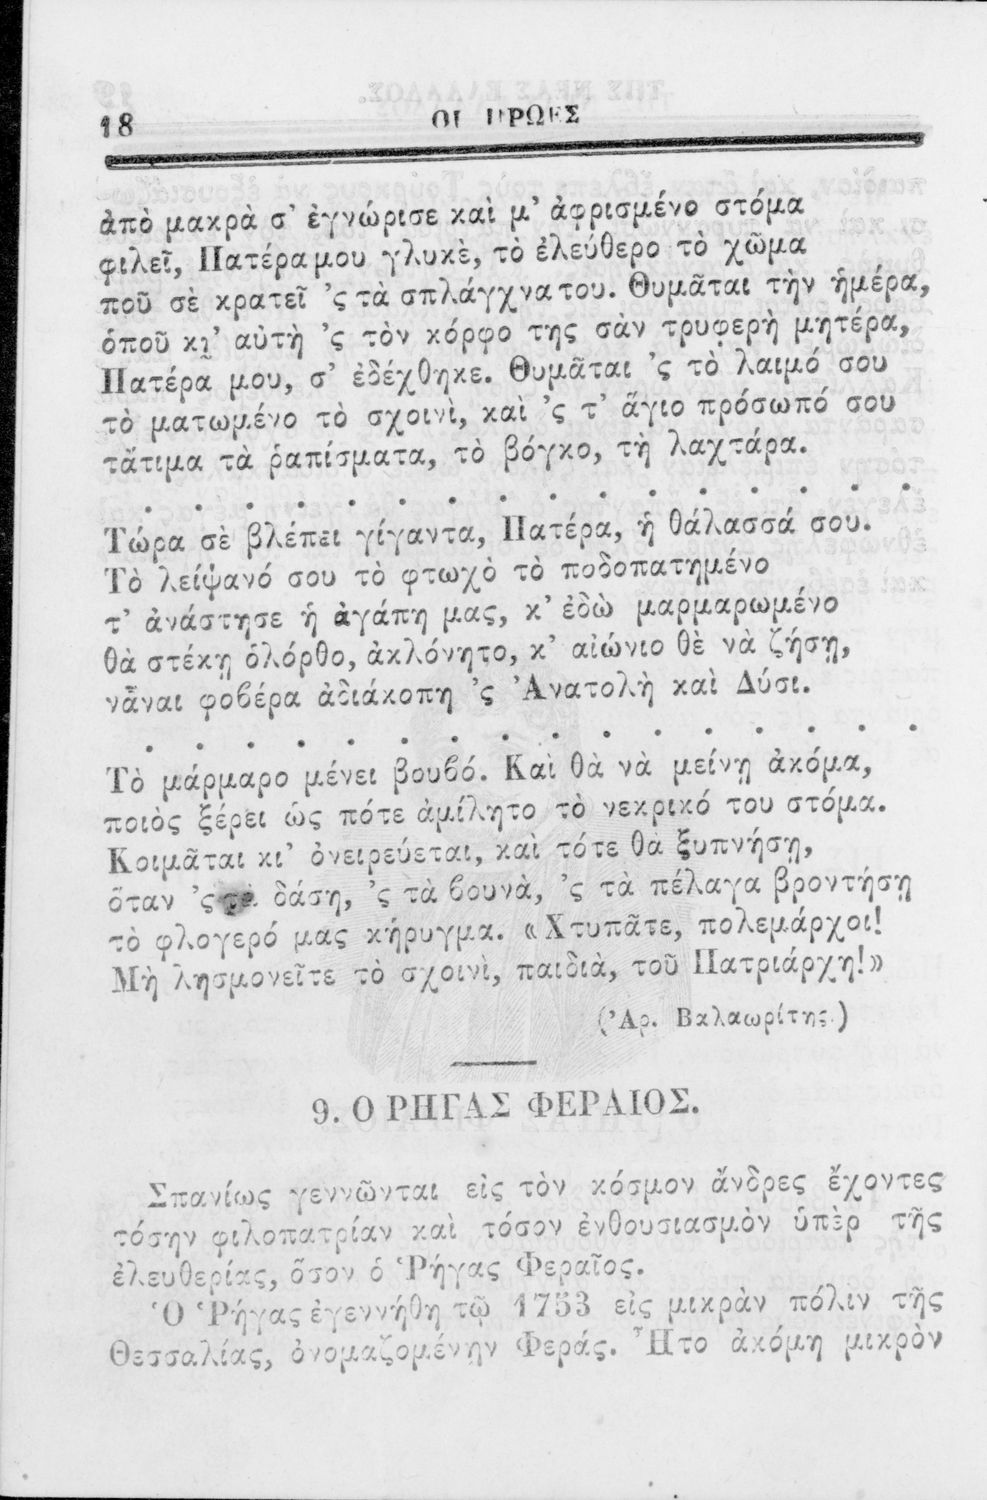 18 ΟΙ ΗΡΩΕΣ
ἀπὸ μακρὰ σ' ἐγνώρισε καὶ μ' ἀφρισμένο στόμα
φιλεῖ, Πατέρα μου γλυκὲ, τὸ ἐλεύθερο τὸ χῶμα
ποῦ σὲ κρατεῖ 'ς τὰ σπλάγχνα του. Θυμᾶται τὴν ἡμέρα,
ὁποῦ κι' αὐτὴ 'ς τὸν κόρφο της σὰν τρυφερὴ μητέρα,
Πατέρα μου, σ' ἐδέχθηκε. Θυμᾶται 'ς τὸ λαιμό σου
τὸ ματωμένο τὸ σχοινὶ, καὶ 'ς τ' ἅγιο πρόσωπό σου
τἄτιμα τὰ ῥαπίσματα, τὸ βόγκο, τὴ λαχτάρα.
. . . . . . . . . . . . . . . .
Τώρα σὲ βλέπει γίγαντα, Πατέρα, ἡ θάλασσά σου.
Τὸ λείψανό σου τὸ φτωχὸ τὸ ποδοπατημένο
τ' ἀνάστησε ἡ ἀγάπη μας, κ' ἐδὼ μαρμαρωμένο
θὰ στέκῃ ὁλόρθο, ἀκλόνητο, κ' αἰώνιο θὲ νὰ ζήσῃ,
νἆναι φοβέρα ἀδιάκοπη 'ς Ἀνατολὴ καὶ Δύσι.
. . . . . . . . . . . . . . . .
Τὸ μάρμαρο μένει βουβό. Καὶ θὰ νὰ μείνῃ ἀκόμα,
ποιὸς ξέρει ὡς πότε ἀμίλητο τὸ νεκρικό του στόμα.
Κοιμᾶται κι' ὀνειρεύεται, καὶ τότε θὰ ξυπνήσῃ,
ὅταν 'ς τὰ δάση, 'ς τὰ βουνὰ, 'ς τὰ πέλαγα βροντήσῃ
τὸ φλογερό μας κήρυγμα. «Χτυπᾶτε, πολεμάρχοι!
Μὴ λησμονεῖτε τὸ σχοινὶ, παιδιὰ, τοῦ Πατριάρχη!»
(Ἀρ. Βαλαωρίτης.)
9. Ο ΡΗΓΑΣ ΦΕΡΑΙΟΣ.
Σπανίως γεννῶνται εἰς τὸν κόσμον ἄνδρες ἔχοντες
τόσην φιλοπατρίαν καὶ τόσον ἐνθουσιασμὸν ὑπὲρ τῆς
ἐλευθερίας, ὅσον ὁ Ῥήγας Φεραῖος.
Ὁ Ῥήγας ἐγεννήθη τῷ 1753 εἰς μικρὰν πόλιν τῆς
Θεσσαλίας, ὀνομαζομένην Φεράς. Ἦτο ἀκόμη μικρὸν